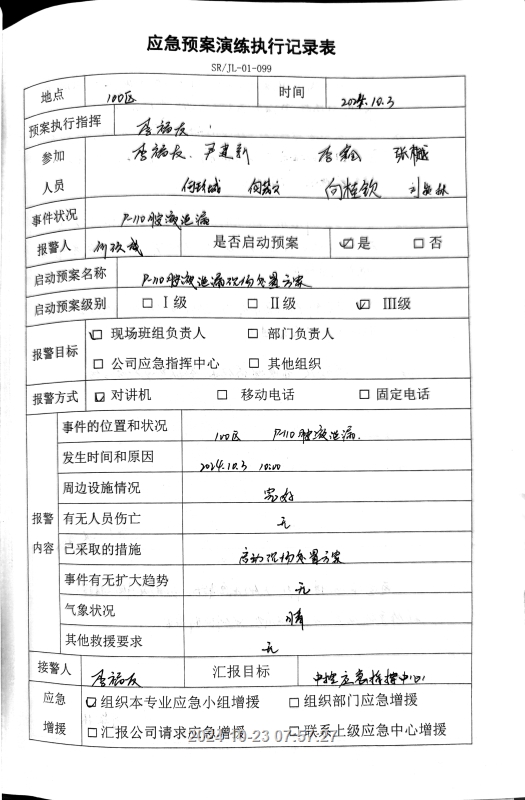 应急预案演练执行记录表
SR/JL-01-099
地点 100区 时间 2024.10.3
预案执行指挥 李福友
参加 李福友 尹建新 李鑫 张樾
人员 何桂钦
事件状况 P-110胺液泄漏
报警人 是否启动预案 ☑是 □否
启动预案名称 P-110胺液泄漏现场处置方案
启动预案级别 □Ⅰ级 □Ⅱ级 ☑Ⅲ级
报警目标 ☑现场班组负责人 □部门负责人
□公司应急指挥中心 □其他组织
报警方式 ☑对讲机 □移动电话 □固定电话
报警内容 事件的位置和状况 100区 P-110胺液泄漏.
发生时间和原因 2024.10.3 10:00
周边设施情况 完好
有无人员伤亡 无
已采取的措施 启动现场处置方案
事件有无扩大趋势 无
气象状况 晴
其他救援要求 无
接警人 李福友 汇报目标 中控应急指挥中心
应急增援 ☑组织本专业应急小组增援 □组织部门应急增援
□汇报公司请求应急增援 □联系上级应急中心增援
2024-10-23 07:57:27